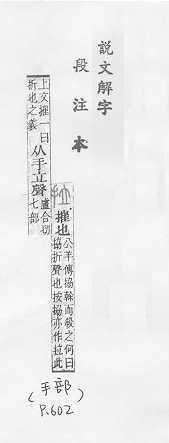 說文解字
段注本
摧也公羊傳搚幹而殺之何曰
搚折聲也按搚亦作拉此
上文摧一曰
折也之義从手立聲盧合切
七部
(手部)
P.602